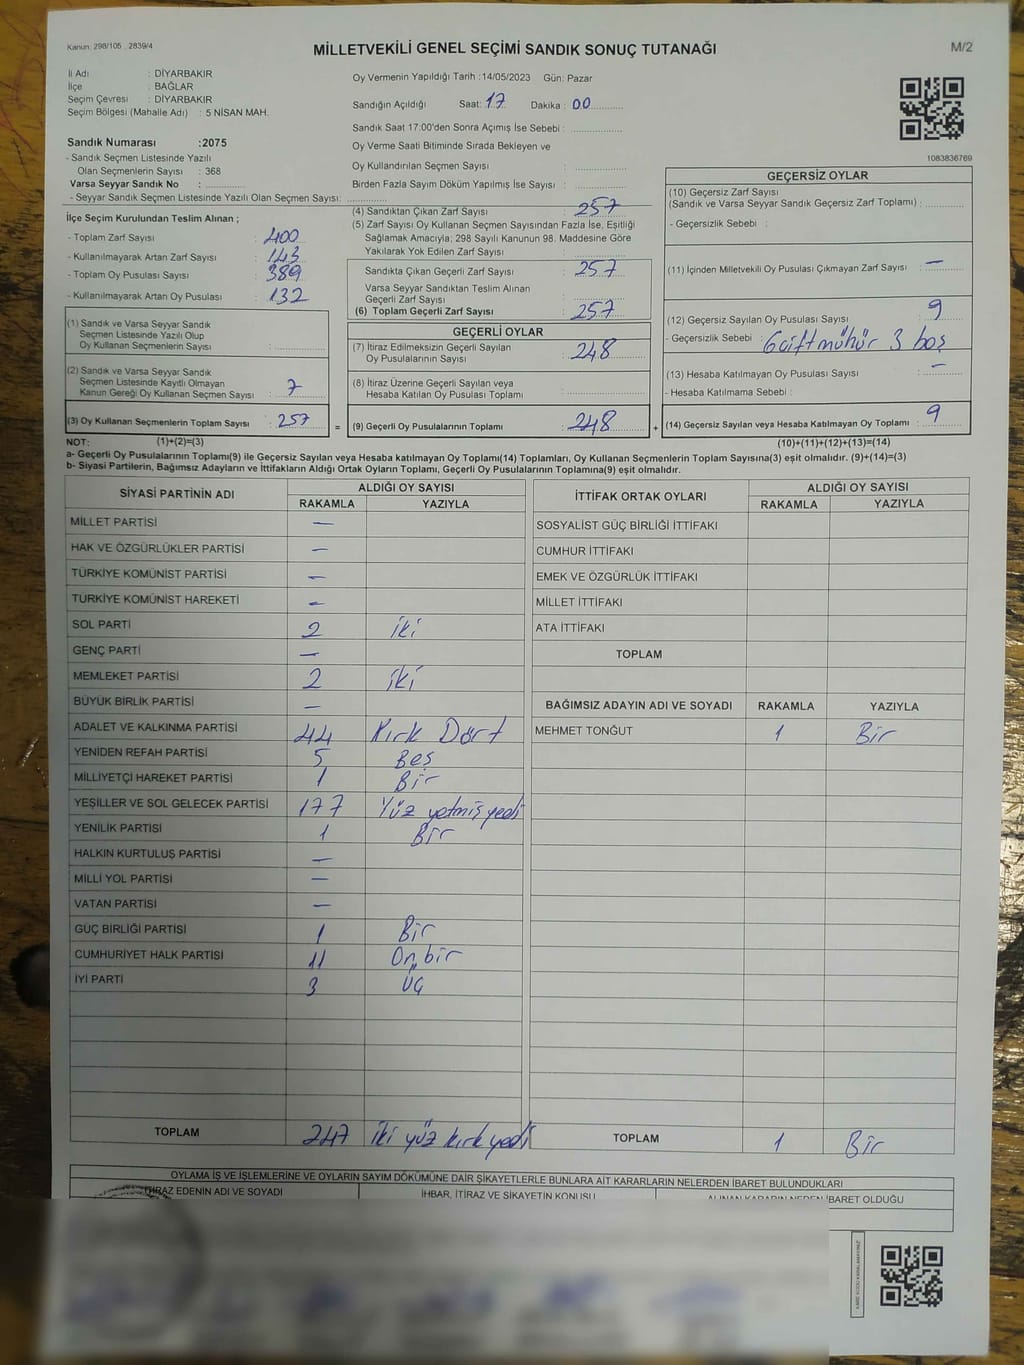 Kanun: 298/105 , 2839/4
MİLLETVEKİLİ GENEL SEÇİMİ SANDIK SONUÇ TUTANAĞI
M/2
İl Adı : DİYARBAKIR
İlçe : BAĞLAR
Seçim Çevresi : DİYARBAKIR
Seçim Bölgesi (Mahalle Adı) : 5 NİSAN MAH.
Sandık Numarası :2075
- Sandık Seçmen Listesinde Yazılı
Olan Seçmenlerin Sayısı : 368
Varsa Seyyar Sandık No :
- Seyyar Sandık Seçmen Listesinde Yazılı Olan Seçmen Sayısı:
Oy Vermenin Yapıldığı Tarih :14/05/2023 Gün: Pazar
Sandığın Açıldığı Saat: 17 Dakika : 00
Sandık Saat 17:00'den Sonra Açımış İse Sebebi :
Oy Verme Saati Bitiminde Sırada Bekleyen ve
Oy Kullandırılan Seçmen Sayısı :
Birden Fazla Sayım Döküm Yapılmış İse Sayısı :
1083836769
İlçe Seçim Kurulundan Teslim Alınan ;
- Toplam Zarf Sayısı : 400
- Kullanılmayarak Artan Zarf Sayısı : 143
- Toplam Oy Pusulası Sayısı : 389
- Kullanılmayarak Artan Oy Pusulası : 132
(1) Sandık ve Varsa Seyyar Sandık
Seçmen Listesinde Yazılı Olup
Oy Kullanan Seçmenlerin Sayısı :
(2) Sandık ve Varsa Seyyar Sandık
Seçmen Listesinde Kayıtlı Olmayan
Kanun Gereği Oy Kullanan Seçmen Sayısı : 7
(3) Oy Kullanan Seçmenlerin Toplam Sayısı : 257
=
(4) Sandıktan Çıkan Zarf Sayısı : 257
(5) Zarf Sayısı Oy Kullanan Seçmen Sayısından Fazla İse, Eşitliği
Sağlamak Amacıyla; 298 Sayılı Kanunun 98. Maddesine Göre
Yakılarak Yok Edilen Zarf Sayısı :
Sandıkta Çıkan Geçerli Zarf Sayısı : 257
Varsa Seyyar Sandıktan Teslim Alınan
Geçerli Zarf Sayısı :
(6) Toplam Geçerli Zarf Sayısı : 257
GEÇERLİ OYLAR
(7) İtiraz Edilmeksizin Geçerli Sayılan
Oy Pusulalarının Sayısı : 248
(8) İtiraz Üzerine Geçerli Sayılan veya
Hesaba Katılan Oy Pusulası Toplamı :
(9) Geçerli Oy Pusulalarının Toplamı : 248
+
GEÇERSİZ OYLAR
(10) Geçersiz Zarf Sayısı
(Sandık ve Varsa Seyyar Sandık Geçersiz Zarf Toplamı) :
- Geçersizlik Sebebi :
(11) İçinden Milletvekili Oy Pusulası Çıkmayan Zarf Sayısı : —
(12) Geçersiz Sayılan Oy Pusulası Sayısı : 9
- Geçersizlik Sebebi : 6 çift mühür 3 boş
(13) Hesaba Katılmayan Oy Pusulası Sayısı : —
- Hesaba Katılmama Sebebi :
(14) Geçersiz Sayılan veya Hesaba Katılmayan Oy Toplamı : 9
NOT: (1)+(2)=(3) (10)+(11)+(12)+(13)=(14)
a- Geçerli Oy Pusulalarının Toplamı(9) ile Geçersiz Sayılan veya Hesaba katılmayan Oy Toplamı(14) Toplamları, Oy Kullanan Seçmenlerin Toplam Sayısına(3) eşit olmalıdır. (9)+(14)=(3)
b- Siyasi Partilerin, Bağımsız Adayların ve İttifakların Aldığı Ortak Oyların Toplamı, Geçerli Oy Pusulalarının Toplamına(9) eşit olmalıdır.
SİYASİ PARTİNİN ADI ALDIĞI OY SAYISI
RAKAMLA YAZIYLA
MİLLET PARTİSİ —
HAK VE ÖZGÜRLÜKLER PARTİSİ —
TÜRKİYE KOMÜNİST PARTİSİ —
TÜRKİYE KOMÜNİST HAREKETİ —
SOL PARTİ 2 iki
GENÇ PARTİ —
MEMLEKET PARTİSİ 2 iki
BÜYÜK BİRLİK PARTİSİ —
ADALET VE KALKINMA PARTİSİ 44 Kırk Dört
YENİDEN REFAH PARTİSİ 5 Beş
MİLLİYETÇİ HAREKET PARTİSİ 1 Bir
YEŞİLLER VE SOL GELECEK PARTİSİ 177 Yüz yetmiş yedi
YENİLİK PARTİSİ 1 Bir
HALKIN KURTULUŞ PARTİSİ —
MİLLİ YOL PARTİSİ —
VATAN PARTİSİ —
GÜÇ BİRLİĞİ PARTİSİ 1 Bir
CUMHURİYET HALK PARTİSİ 11 On bir
İYİ PARTİ 3 üç
TOPLAM 247 iki yüz kırk yedi
İTTİFAK ORTAK OYLARI ALDIĞI OY SAYISI
RAKAMLA YAZIYLA
SOSYALİST GÜÇ BİRLİĞİ İTTİFAKI
CUMHUR İTTİFAKI
EMEK VE ÖZGÜRLÜK İTTİFAKI
MİLLET İTTİFAKI
ATA İTTİFAKI
TOPLAM
BAĞIMSIZ ADAYIN ADI VE SOYADI RAKAMLA YAZIYLA
MEHMET TONĞUT 1 Bir
TOPLAM 1 Bir
OYLAMA İŞ VE İŞLEMLERİNE VE OYLARIN SAYIM DÖKÜMÜNE DAİR ŞİKAYETLERLE BUNLARA AİT KARARLARIN NELERDEN İBARET BULUNDUKLARI
İTİRAZ EDENİN ADI VE SOYADI İHBAR, İTİRAZ VE ŞİKAYETİN KONUSU ALINAN KARARIN NEDEN İBARET OLDUĞU